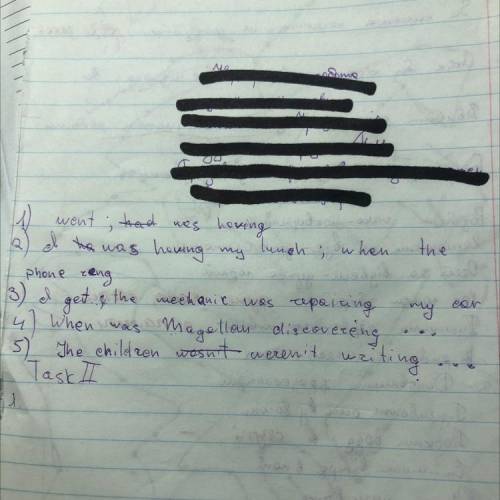 1) went ; had was having
2) I ha was having my lunch ; when the
phone rang
3) I get ; the mechanic was repairing my car
4) When was Magellan discovereing ...
5) The children wasn't weren't writing ...
Task II
1